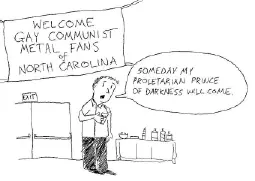 WELCOME
GAY COMMUNIST
METAL FANS
of
NORTH CAROLINA
SOMEDAY MY
PROLETARIAN PRINCE
OF DARKNESS WILL COME.
EXIT